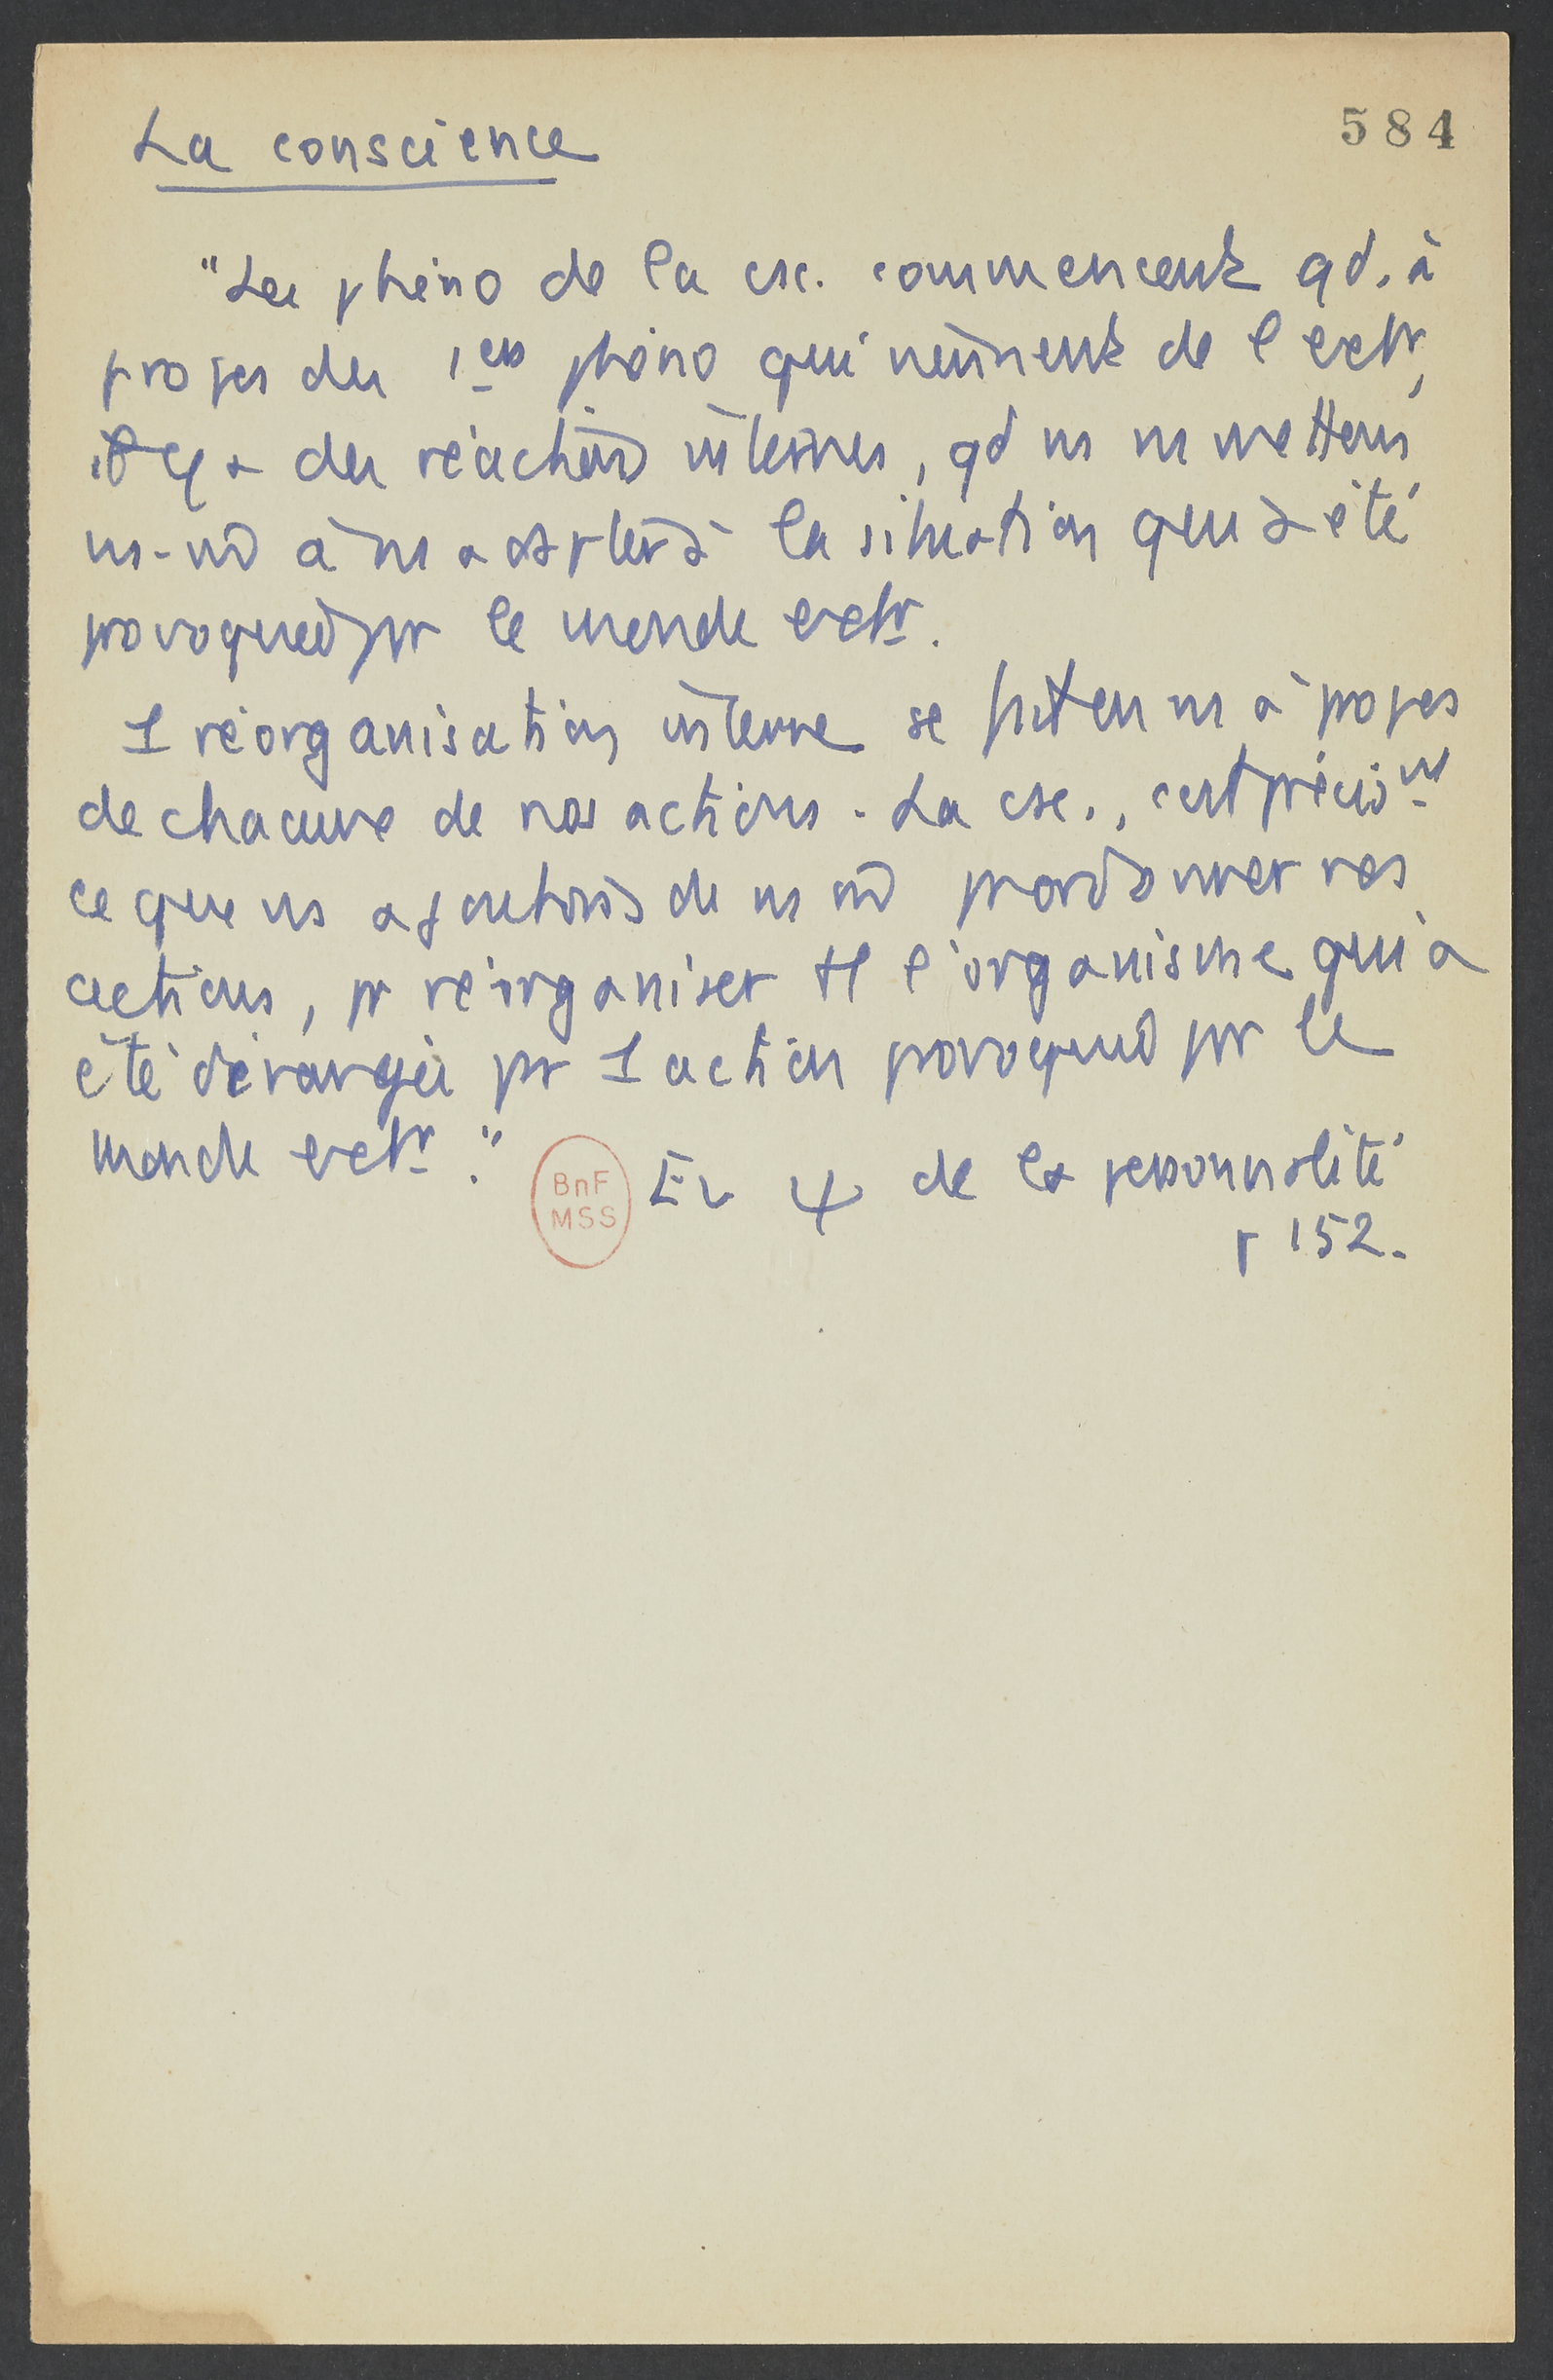 La conscience
584
"Les phéno de la csc. commencent qd, à
propos des 1ers phéno qui viennent de l'extr,
il y a des réactions internes, qd ns ns mettons
ns-m à ns adapter à la situation qui a été
provoquée pr le monde extr.
1 réorganisation interne se fait en ns à propos
de chacune de nos actions. La csc., c'est précist
ce que ns ajoutons de ns m pr ordonner nos
actions, pr réorganiser tt l'organisme qui a
été dérangé pr 1 action provoquée pr le
monde extr."
BnF
MSS
Ev ψ de la personnalité
p 152.